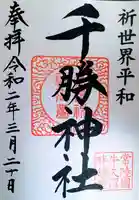 祈世界平和
千勝神社
奉拝 令和二年三月二十日